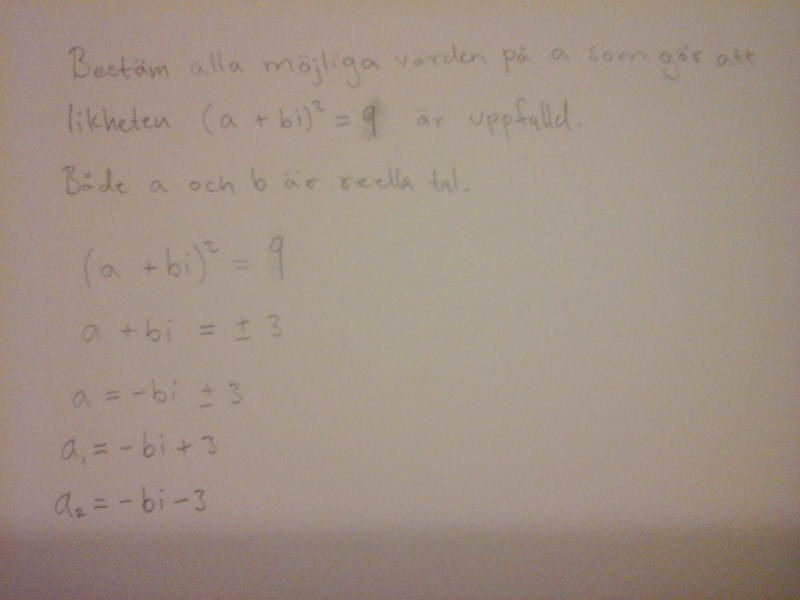 Bestäm alla möjliga värden på a som gör att
likheten (a + bi)² = 9 är uppfylld.
Både a och b är reella tal.
(a + bi)² = 9
a + bi = ± 3
a = -bi ± 3
a₁ = -bi + 3
a₂ = -bi - 3